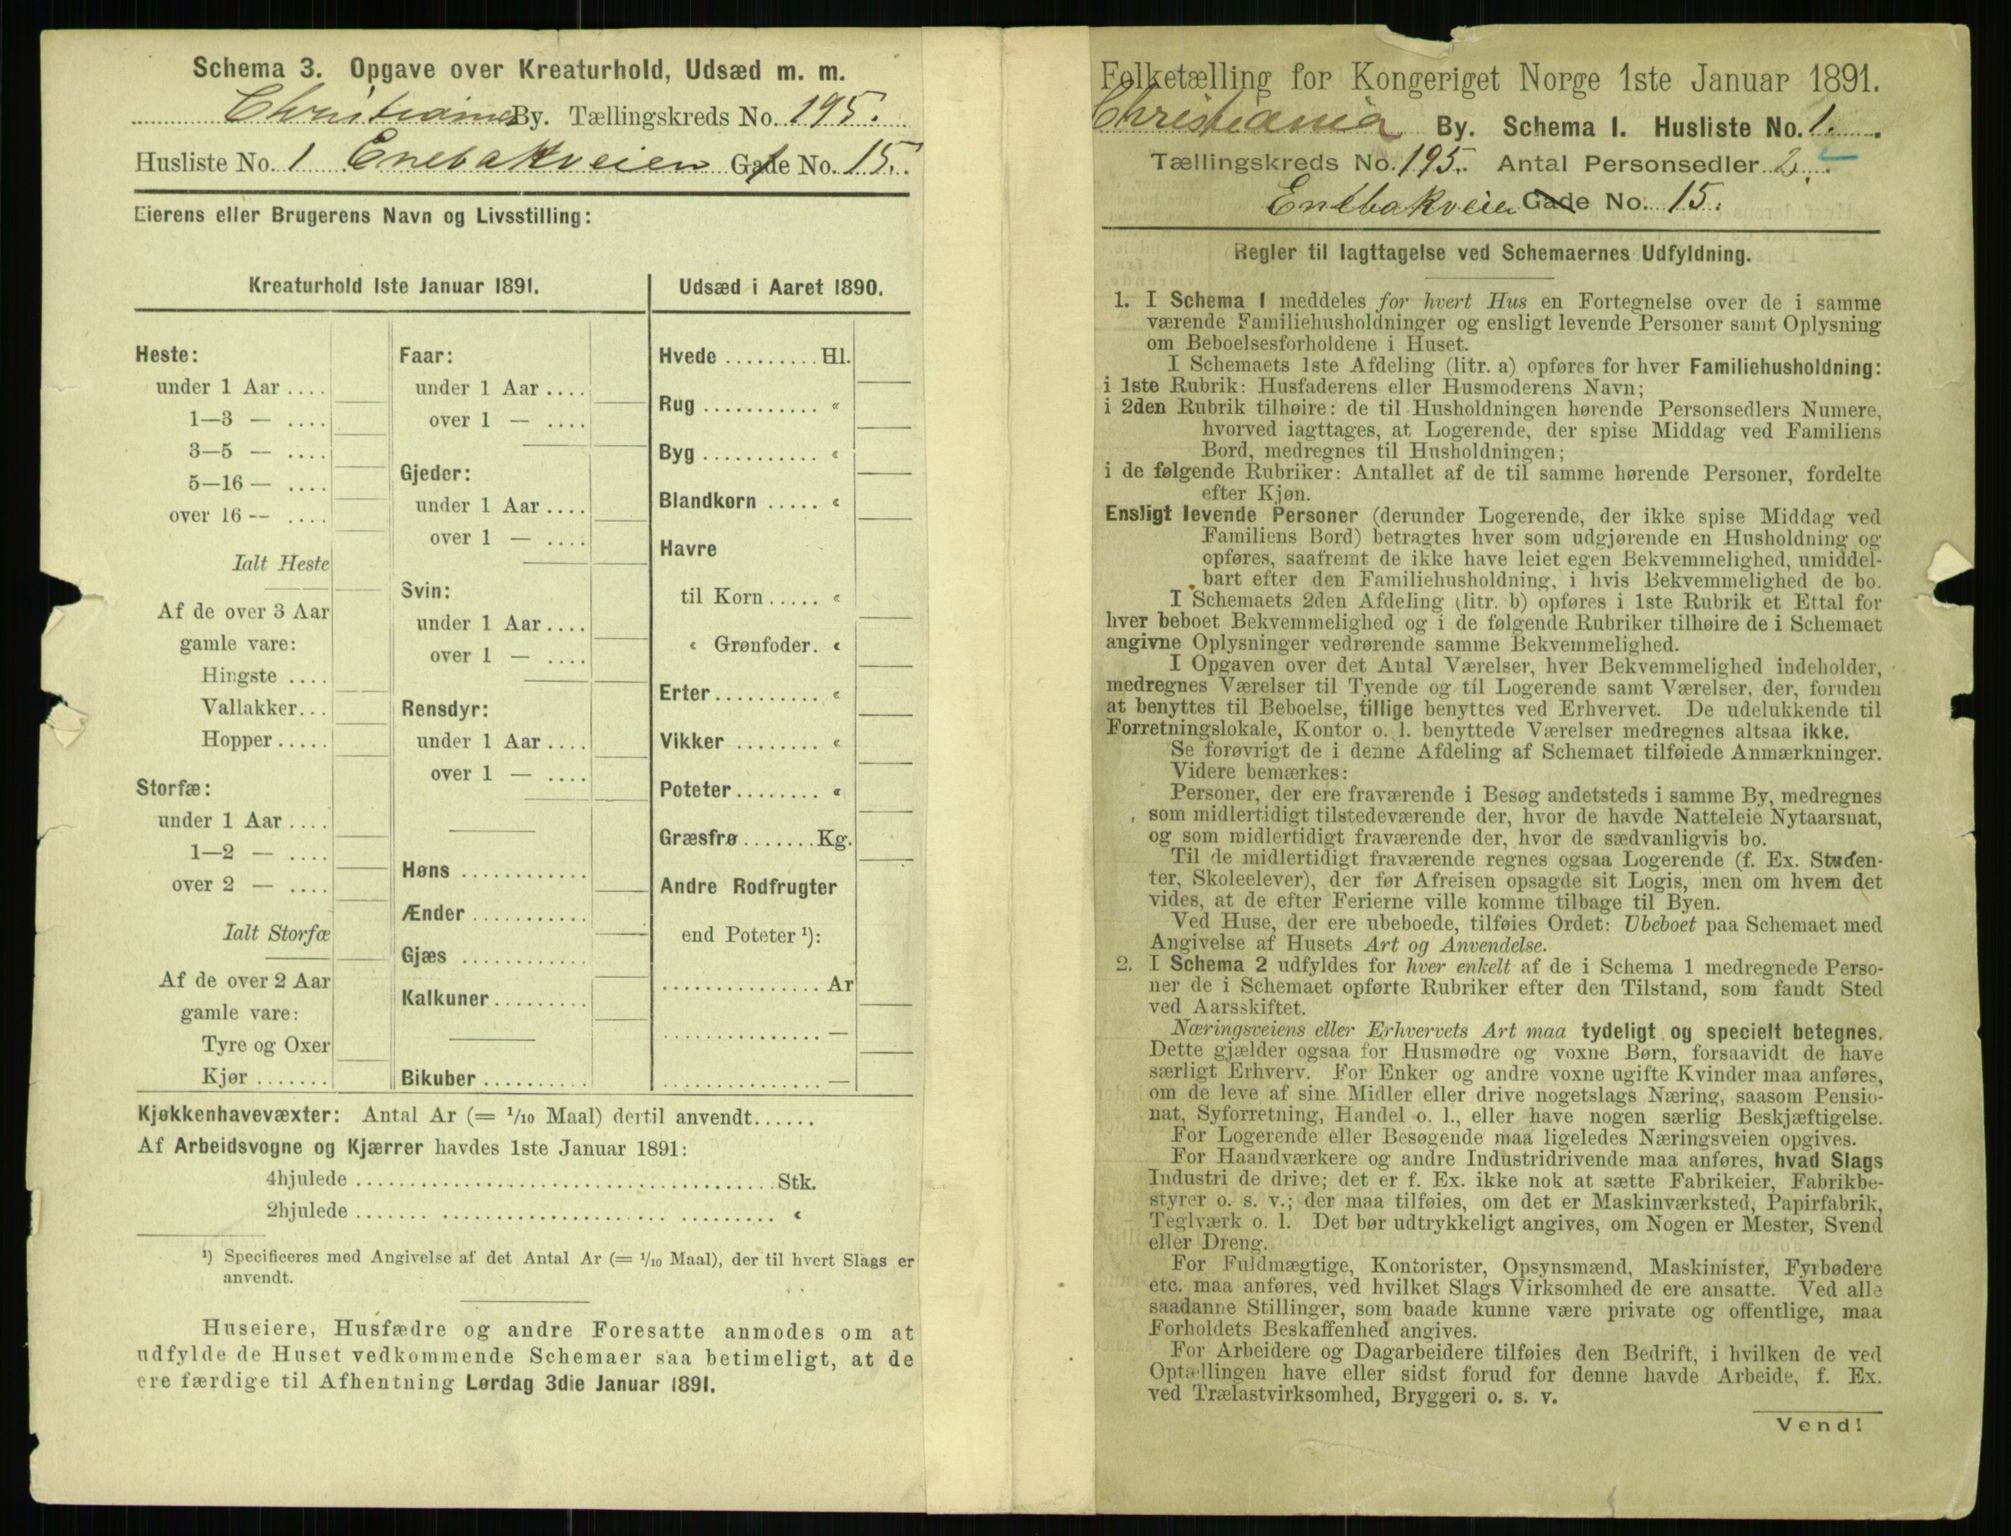 Schema 3. Opgave over Kreaturhold, Udsæd m. m.
Christiania By. Tællingskreds No. 195.
Husliste No. 1 Enebakveien Gade No. 15.
Eierens eller Brugerens Navn og Livsstilling:
Kreaturhold 1ste Januar 1891.
Heste:
under 1 Aar ....
1—3 — ....
3—5 — ....
5—16 — ....
over 16 — ....
Ialt Heste
Af de over 3 Aar
gamle vare:
Hingste ....
Vallakker...
Hopper .....
Storfæ:
under 1 Aar ....
1—2 — ....
over 2 — ....
Ialt Storfæ
Af de over 2 Aar
gamle vare:
Tyre og Oxer
Kjør .......
Faar:
under 1 Aar ....
over 1 — ....
Gjeder:
under 1 Aar ....
over 1 — ....
Svin:
under 1 Aar ....
over 1 — ....
Rensdyr:
under 1 Aar ....
over 1 — ....
Høns ............
Ænder ...........
Gjæs ............
Kalkuner.........
Bikuber ..........
Udsæd i Aaret 1890.
Hvede ......... Hl.
Rug ........... «
Byg ........... «
Blandkorn ..... «
Havre
til Korn ..... «
« Grønfoder. «
Erter.......... «
Vikker ........ «
Poteter........ «
Græsfrø ....... Kg.
Andre Rodfrugter
end Poteter ¹):
............... Ar
............... —
............... —
Kjøkkenhavevæxter: Antal Ar (= 1/10 Maal) dertil anvendt......
Af Arbeidsvogne og Kjærrer havdes 1ste Januar 1891:
4hjulede ........................................ Stk.
2hjulede ........................................ «
¹) Specificeres med Angivelse af det Antal Ar (= 1/10 Maal), der til hvert Slags er
anvendt.
Huseiere, Husfædre og andre Foresatte anmodes om at
udfylde de Huset vedkommende Schemaer saa betimeligt, at de
ere færdige til Afhentning Lørdag 3die Januar 1891.
Folketælling for Kongeriget Norge 1ste Januar 1891.
Christiania By. Schema I. Husliste No. 1.
Tællingskreds No. 195. Antal Personsedler 2.
Enebakveien Gade No. 15.
Regler til Iagttagelse ved Schemaernes Udfyldning.
1. I Schema 1 meddeles for hvert Hus en Fortegnelse over de i samme
værende Familiehusholdninger og ensligt levende Personer samt Oplysning
om Beboelsesforholdene i Huset.
I Schemaets 1ste Afdeling (litr. a) opføres for hver Familiehusholdning:
i 1ste Rubrik: Husfaderens eller Husmoderens Navn;
i 2den Rubrik tilhøire: de til Husholdningen hørende Personsedlers Numere,
hvorved iagttages, at Logerende, der spise Middag ved Familiens
Bord, medregnes til Husholdningen;
i de følgende Rubriker: Antallet af de til samme hørende Personer, fordelte
efter Kjøn.
Ensligt levende Personer (derunder Logerende, der ikke spise Middag ved
Familiens Bord) betragtes hver som udgjørende en Husholdning og
opføres, saafremt de ikke have leiet egen Bekvemmelighed, umiddel-
bart efter den Familiehusholdning, i hvis Bekvemmelighed de bo.
I Schemaets 2den Afdeling (litr. b) opføres i 1ste Rubrik et Ettal for
hver beboet Bekvemmelighed og i de følgende Rubriker tilhøire de i Schemaet
angivne Oplysninger vedrørende samme Bekvemmelighed.
I Opgaven over det Antal Værelser, hver Bekvemmelighed indeholder,
medregnes Værelser til Tyende og til Logerende samt Værelser, der, foruden
at benyttes til Beboelse, tillige benyttes ved Erhvervet. De udelukkende til
Forretningslokale, Kontor o. l. benyttede Værelser medregnes altsaa ikke.
Se forøvrigt de i denne Afdeling af Schemaet tilføiede Anmærkninger.
Videre bemærkes:
Personer, der ere fraværende i Besøg andetsteds i samme By, medregnes
som midlertidigt tilstedeværende der, hvor de havde Natteleie Nytaarsnat,
og som midlertidigt fraværende der, hvor de sædvanligvis bo.
Til de midlertidigt fraværende regnes ogsaa Logerende (f. Ex. Studen-
ter, Skoleelever), der før Afreisen opsagde sit Logis, men om hvem det
vides, at de efter Ferierne ville komme tilbage til Byen.
Ved Huse, der ere ubeboede, tilføies Ordet: Ubeboet paa Schemaet med
Angivelse af Husets Art og Anvendelse.
2. I Schema 2 udfyldes for hver enkelt af de i Schema 1 medregnede Perso-
ner de i Schemaet opførte Rubriker efter den Tilstand, som fandt Sted
ved Aarsskiftet.
Næringsveiens eller Erhvervets Art maa tydeligt og specielt betegnes.
Dette gjælder ogsaa for Husmødre og voxne Børn, forsaavidt de have
særligt Erhverv. For Enker og andre voxne ugifte Kvinder maa anføres,
om de leve af sine Midler eller drive nogetslags Næring, saasom Pensio-
nat, Syforretning, Handel o. l., eller have nogen særlig Beskjæftigelse.
For Logerende eller Besøgende maa ligeledes Næringsveien opgives.
For Haandværkere og andre Industridrivende maa anføres, hvad Slags
Industri de drive; det er f. Ex. ikke nok at sætte Fabrikeier, Fabrikbe-
styrer o. s. v.; der maa tilføies, om det er Maskinværksted, Papirfabrik,
Teglværk o. l. Det bør udtrykkeligt angives, om Nogen er Mester, Svend
eller Dreng.
For Fuldmægtige, Kontorister, Opsynsmænd, Maskinister, Fyrbødere
etc. maa anføres, ved hvilket Slags Virksomhed de ere ansatte. Ved alle
saadanne Stillinger, som baade kunne være private og offentlige, maa
Forholdets Beskaffenhed angives.
For Arbeidere og Dagarbeidere tilføies den Bedrift, i hvilken de ved
Optællingen have eller sidst forud for denne havde Arbeide, f. Ex.
ved Trælastvirksomhed, Bryggeri o. s. v.
Vend!